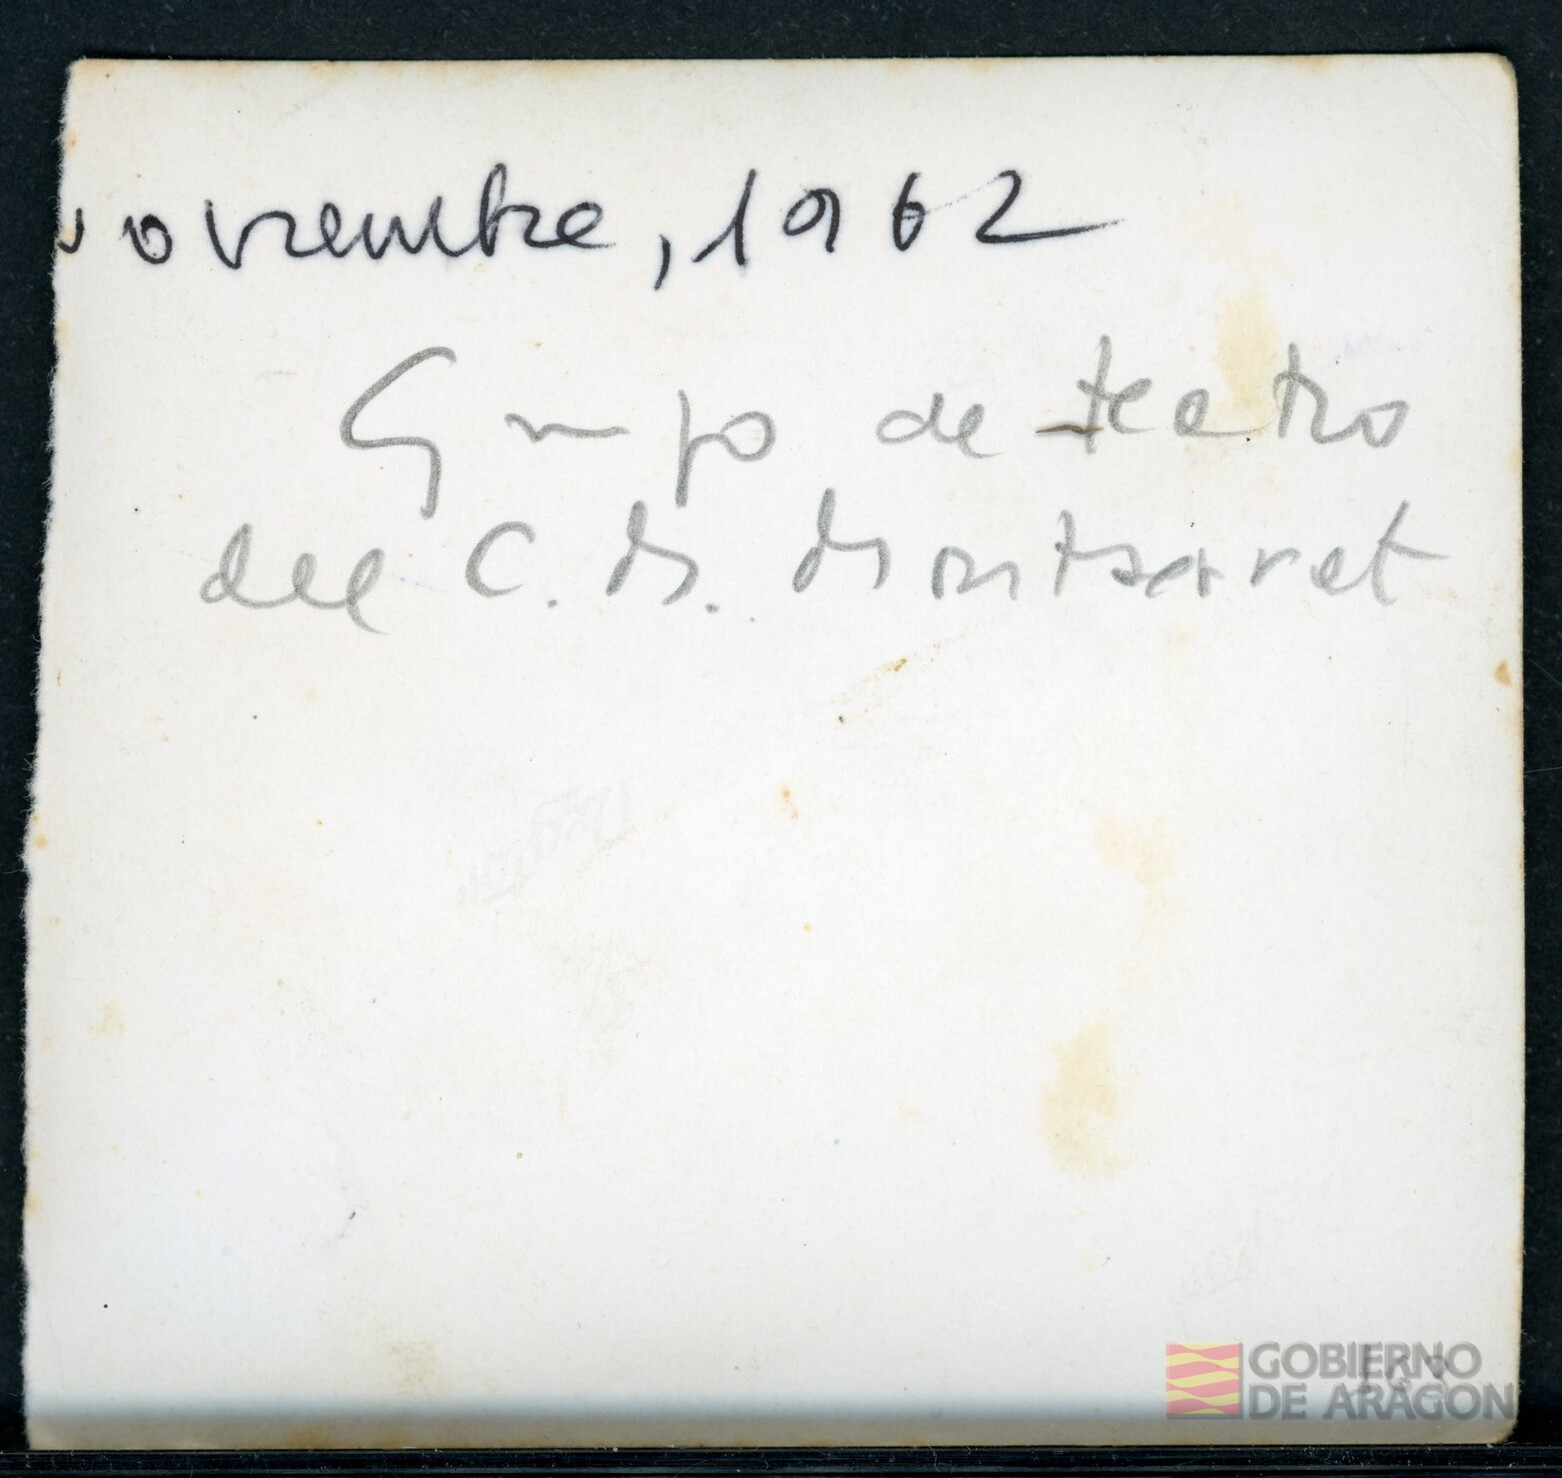 noviembre, 1962
Grupo de teatro
del C. M. Montserrat
GOBIERNO
DE ARAGON